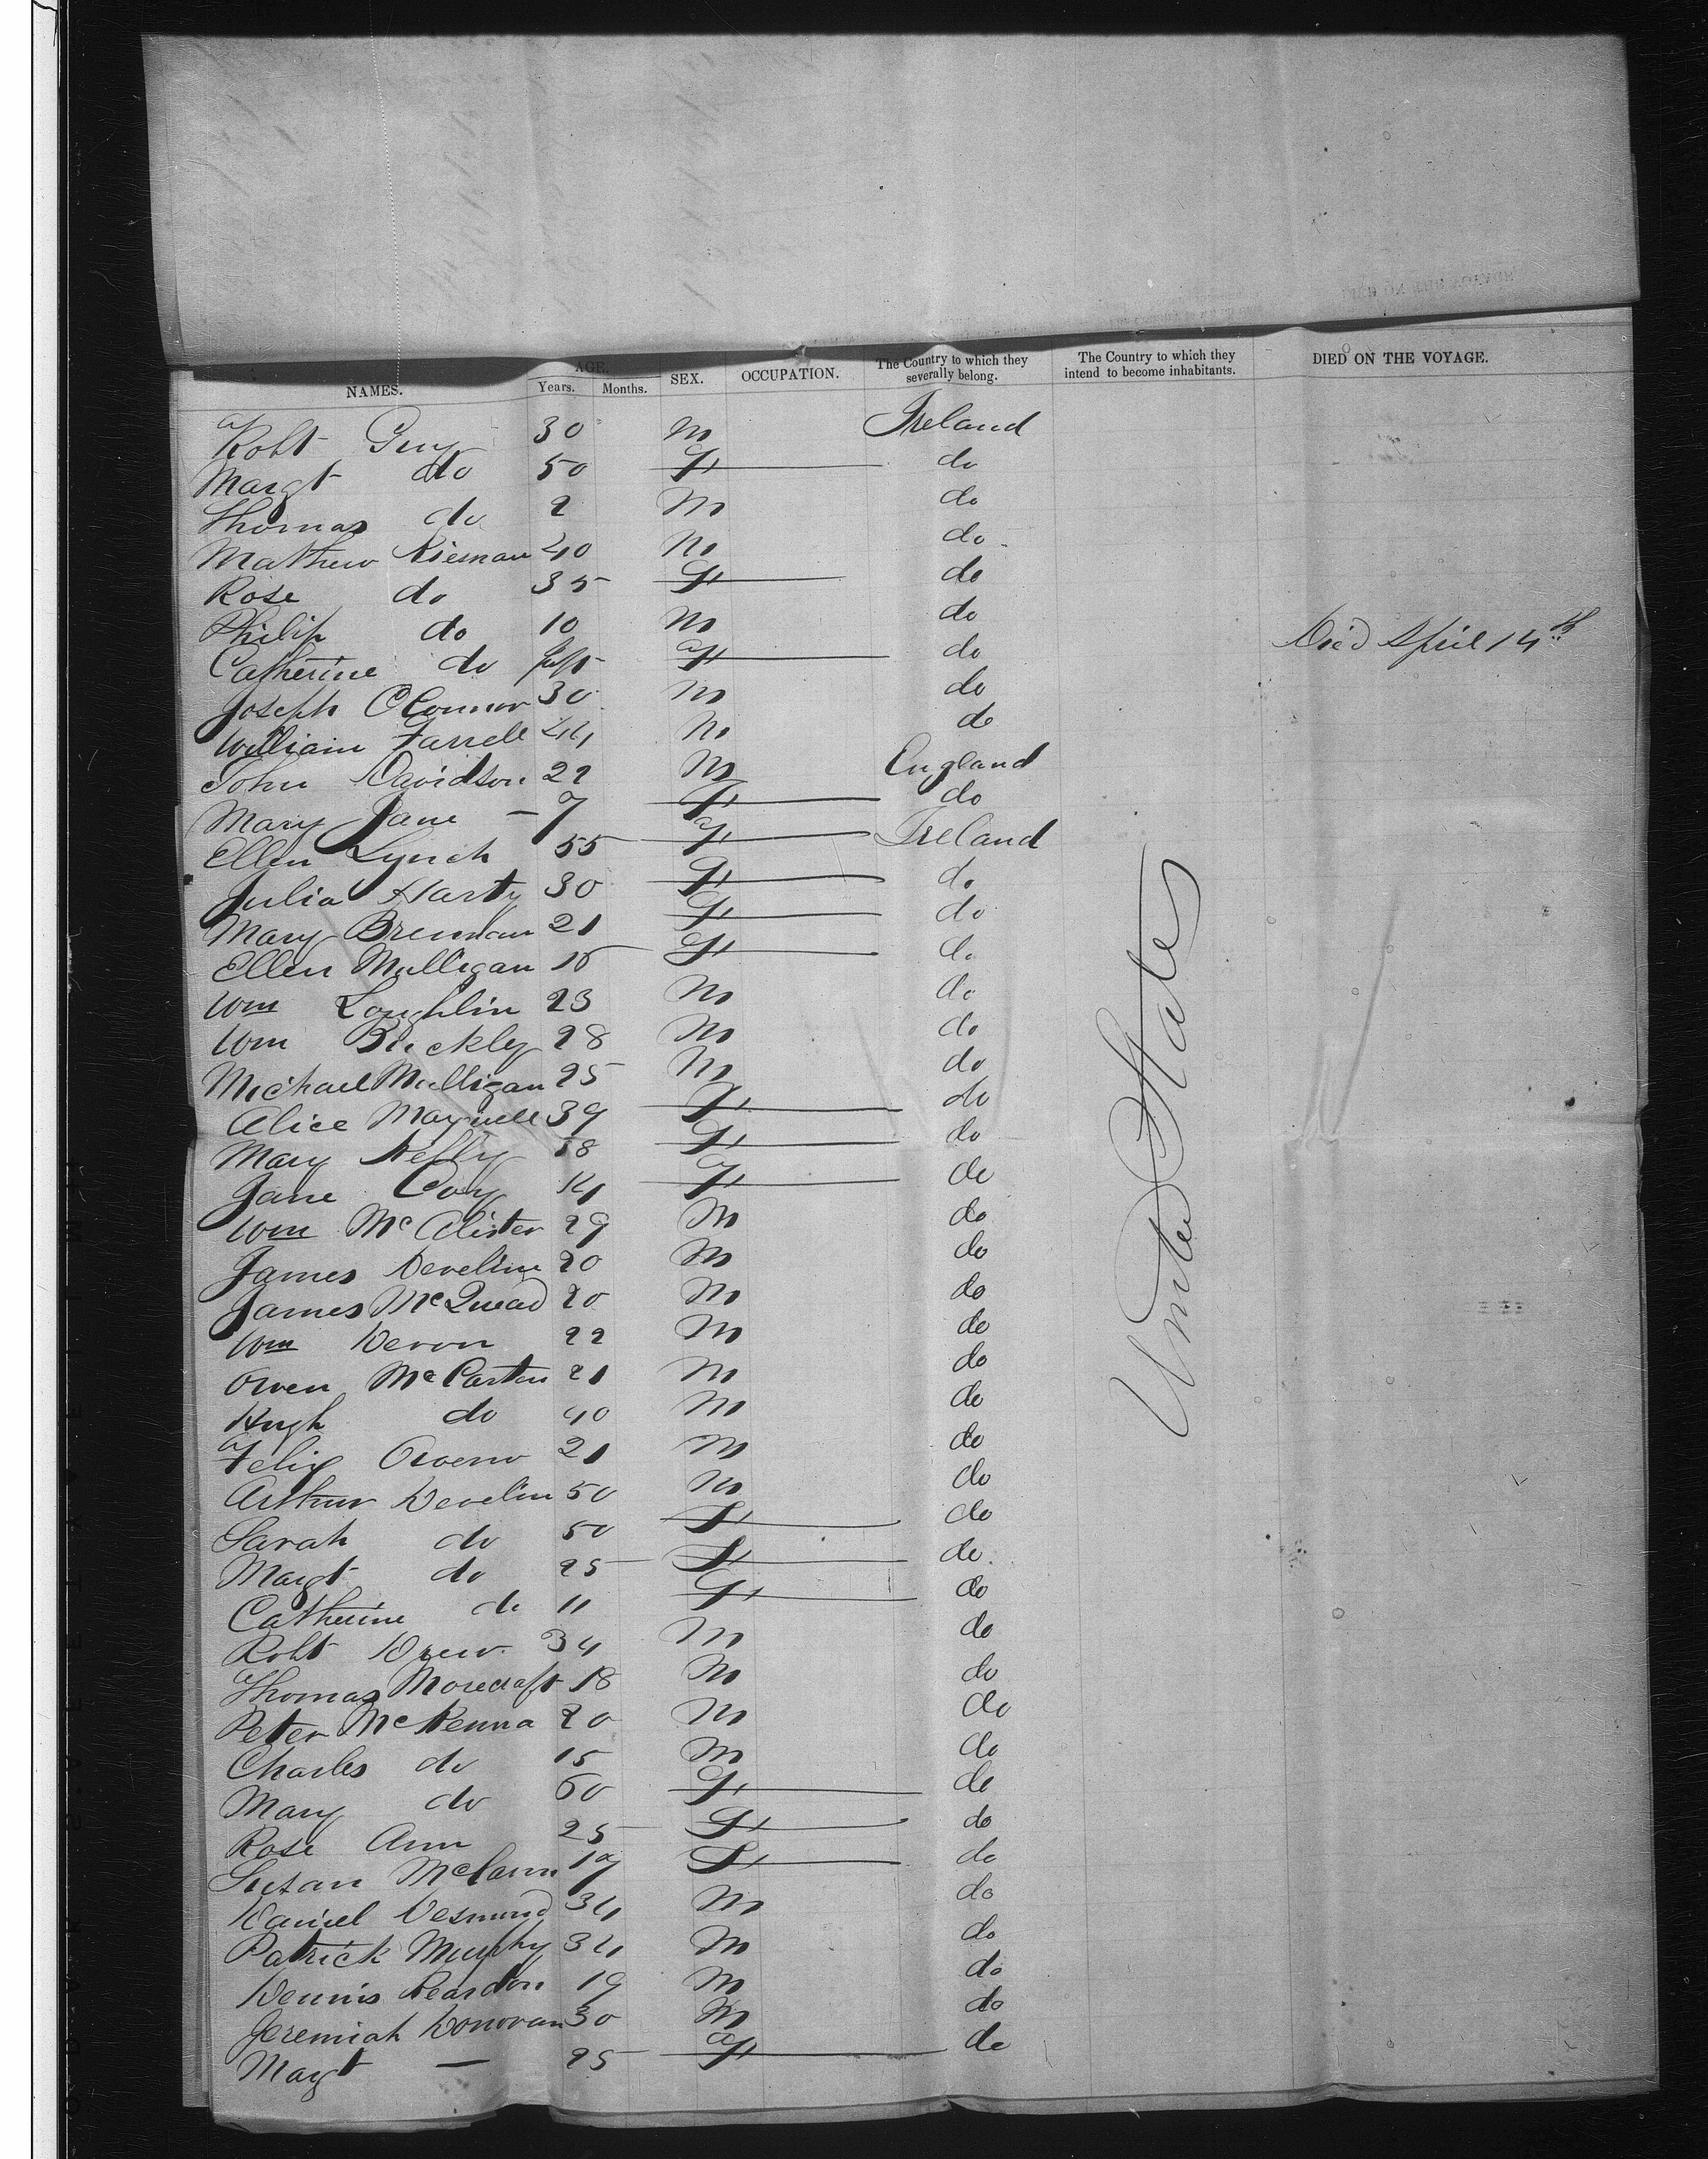 NAMES. AGE. Years. Months. SEX. OCCUPATION. The Country to which they severally belong. The Country to which they intend to become inhabitants. DIED ON THE VOYAGE.
Robt Guy 30 M Ireland
Margt do 50 F do
Thomas do 2 M do
Mathew Kiernan 40 M do
Rose do 35 F do
Philip do 10 M do
Catherine do Inft F do Died April 14th
Joseph OConnor 30 M do
William Farrell 44 M do
John Davidson 22 M England
Mary Jane — 7 F do
Ellen Lynch 55 F Ireland
Julia Harty 30 F do
Mary Brennan 21 F do
Ellen Mulligan 15 F do
Wm Loughlin 23 M do
Wm Buckley 28 M do
Michael Mulligan 25 M do
Alice 39 F do
Mary Kelly 18 F do
Jane Coy 14 F do
Wm McAlister 29 M do
James Develin 20 M do
James McQuead 20 M do
Wm Devon 22 M do
Owen McCartin 21 M do
Hugh do 40 M do
Felix Owens 21 M do
Arthur Develin 50 M do
Sarah do 50 F do
Margt do 25 F do
Catherine do 11 F do
Robt Drew 34 M do
Thomas Morecraft 18 M do
Peter McKenna 20 M do
Charles do 15 M do
Mary do 60 F do
Rose Ann 25 F do
Susan McCann 19 F do
Daniel Desmond 34 M do
Patrick Murphy 34 M do
Dennis Reardon 19 M do
Jeremiah Donovan 30 M do
Margt — 25 F do
United States